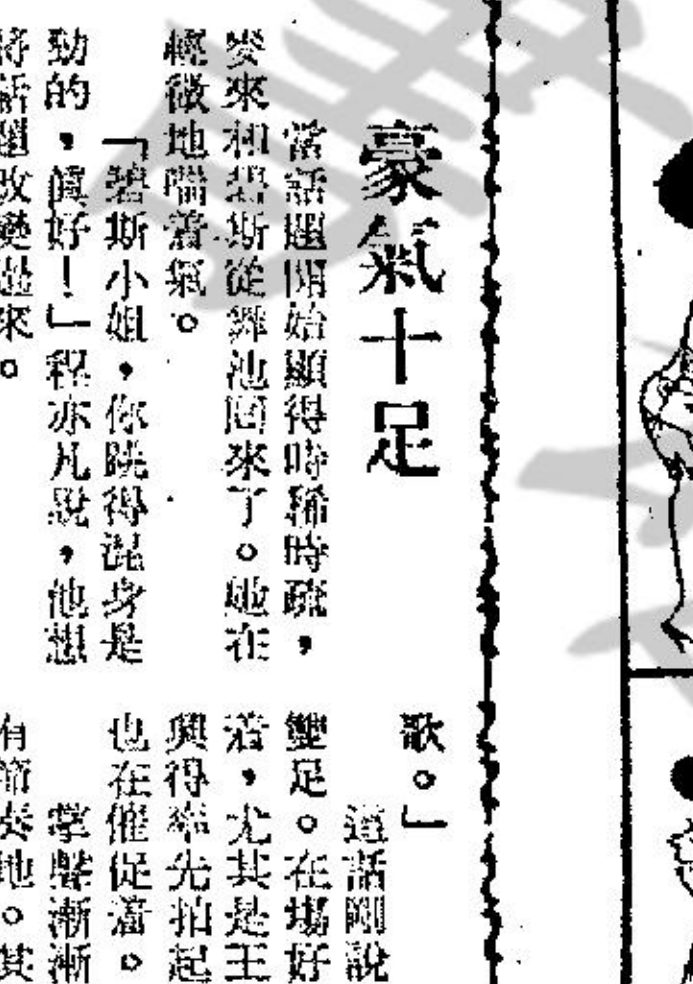 豪氣十足
當話題開始顯得時稀時疏，
麥來和碧斯從舞池囘來了。她在
輕微地喘着氣。
「碧斯小姐，你跳得混身是
勁的，眞好！」程亦凡說，他想
將話題改變過來。
歌。」
這話剛說
雙足。在場好
若，尤其是王
興得率先拍起
也在催促着。
掌聲漸漸
有節奏地。其